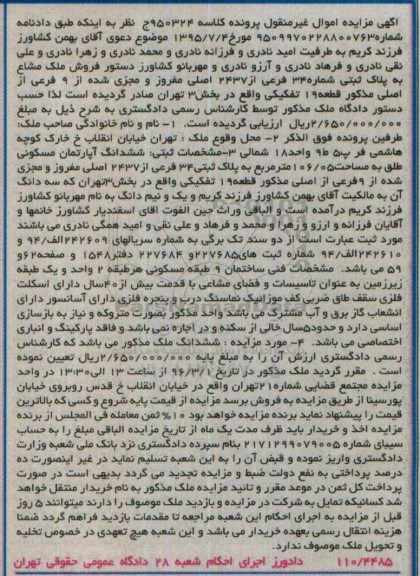 آگهی مزایده اموال غیرمنقول پرونده کلاسه ۹۵۰۳۲۴ج نظر به اینکه طبق دادنامه
شماره۹۵۰۹۹۷۰۲۲۸۸۰۰۷۶۳ مورخ۱۳۹۵/۷/۴ موضوع دعوی آقای بهمن کشاورز
فرزند کریم به طرفیت امید نادری و فرزانه نادری و محمد نادری و زهرا نادری و علی
نقی نادری و فرهاد نادری و آرزو نادری و مهربانو کشاورز دستور فروش ملک مشاع
به پلاک ثبتی شماره۳۴ فرعی از۲۴۳۷ اصلی مفروز و مجزی شده از ۹ فرعی از
اصلی مذکور قطعه۱۹ تفکیکی واقع در بخش۳ تهران صادر گردیده است لذا حسب
دستور دادگاه ملک مذکور توسط کارشناس رسمی دادگستری به شرح ذیل به مبلغ
۲/۶۵۰/۰۰۰/۰۰۰ریال ارزیابی گردیده است. ۱- نام و نام خانوادگی صاحب ملک:
طرفین پرونده فوق الذکر ۲- محل وقوع ملک : تهران خیابان انقلاب خ خارک کوچه
هاشمی فر پ۵ ط۹ واحد۱۸ شمالی ۳-مشخصات ثبتی: ششدانگ آپارتمان مسکونی
طلق به مساحت۱۰۶/۰۵مترمربع به پلاک ثبتی۳۴ فرعی از۲۴۳۷ اصلی مفروز و مجزی
شده از ۹فرعی از اصلی مذکور قطعه۱۹ تفکیکی واقع در بخش۳تهران که سه دانگ
آن به مالکیت آقای بهمن کشاورز فرزند کریم و یک و نیم دانگ به نام مهربانو کشاورز
فرزند کریم درآمده است و الباقی وراث حین الفوت آقای اسفندیار کشاورز خانمها و
آقایان فرزانه و ارزو و زهرا و محمد و فرهاد و علی نقی و امید همگی نادری می باشند
مورد ثبت عبارت است از دو سند تک برگی به شماره سریالهای ۲۴۲۶۰۹الف/۹۴ و
۲۴۲۶۱۰الف/۹۴ شماره ثبت های۲۲۷۶۸۵و ۲۲۷۶۸۴ دفتر۱۵۴۸ و صفحه۶۲و
۵۹ می باشد. مشخصات فنی ساختمان ۹ طبقه مسکونی هرطبقه ۲ واحد و یک طبقه
زیرزمین به عنوان تاسیسات و فضای مشاعی با قدمت بیش از۴۰سال دارای اسکلت
فلزی سقف طاق ضربی کف موزائیک نماسنگ درب و پنجره فلزی دارای آسانسور دارای
انشعاب گاز برق و آب مشترک می باشد واحد مذکور بصورت متروکه و نیاز به بازسازی
اساسی دارد و حدود۵سال خالی از سکنه و در اجاره نمی باشد و فاقد پارکینگ و انباری
اختصاصی می باشد. ۴- مورد مزایده : ششدانگ ملک مذکور می باشد که کارشناس
رسمی دادگستری ارزش آن را به مبلغ پایه ۲/۶۵۰/۰۰۰/۰۰۰ریال تعیین نموده
است . مقرر گردید ملک مذکور در تاریخ ۹۶/۳/۱ از ساعت ۱۳ الی۱۳:۳۰ در واحد
مزایده مجتمع قضایی شماره۲۱تهران واقع در خیابان انقلاب خ قدس روبروی خیابان
پورسینا از طریق مزایده به فروش برسد مزایده از قیمت پایه شروع و کسی که بالاترین
قیمت را پیشنهاد نماید برنده مزایده خواهد بود ۱۰% ثمن معامله فی المجلس از برنده
مزایده اخذ و خریدار باید ظرف مدت یک ماه از تاریخ مزایده الباقی مبلغ را به حساب
سیبای شماره ۲۱۷۱۲۹۹۰۷۹۰۰۵ بنام سپرده دادگستری نزد بانک ملی شعبه وزارت
دادگستری واریز نموده و قبض آن را به این شعبه تسلیم نماید در غیر اینصورت ده
درصد پرداختی به نفع دولت ضبط و مزایده تجدید می گردد بدیهی است در صورت
پرداخت کل ثمن در موعد مقرر و تائید مزایده ملک مذکور به نام خریدار منتقل خواهد
شد کسانیکه تمایل به شرکت در مزایده و بازدید ملک موصوف را دارند میتوانند ۵ روز
قبل از مزایده به اجرای احکام این شعبه مراجعه تا مقدمات بازدید فراهم گردد ضمنا
هزینه انتقال رسمی بعهده خریدار می باشد و این شعبه هیچ تعهدی در خصوص تخلیه
و تحویل ملک موصوف ندارد.
۱۱۰/۴۴۸۵ دادورز اجرای احکام شعبه ۲۸ دادگاه عمومی حقوقی تهران